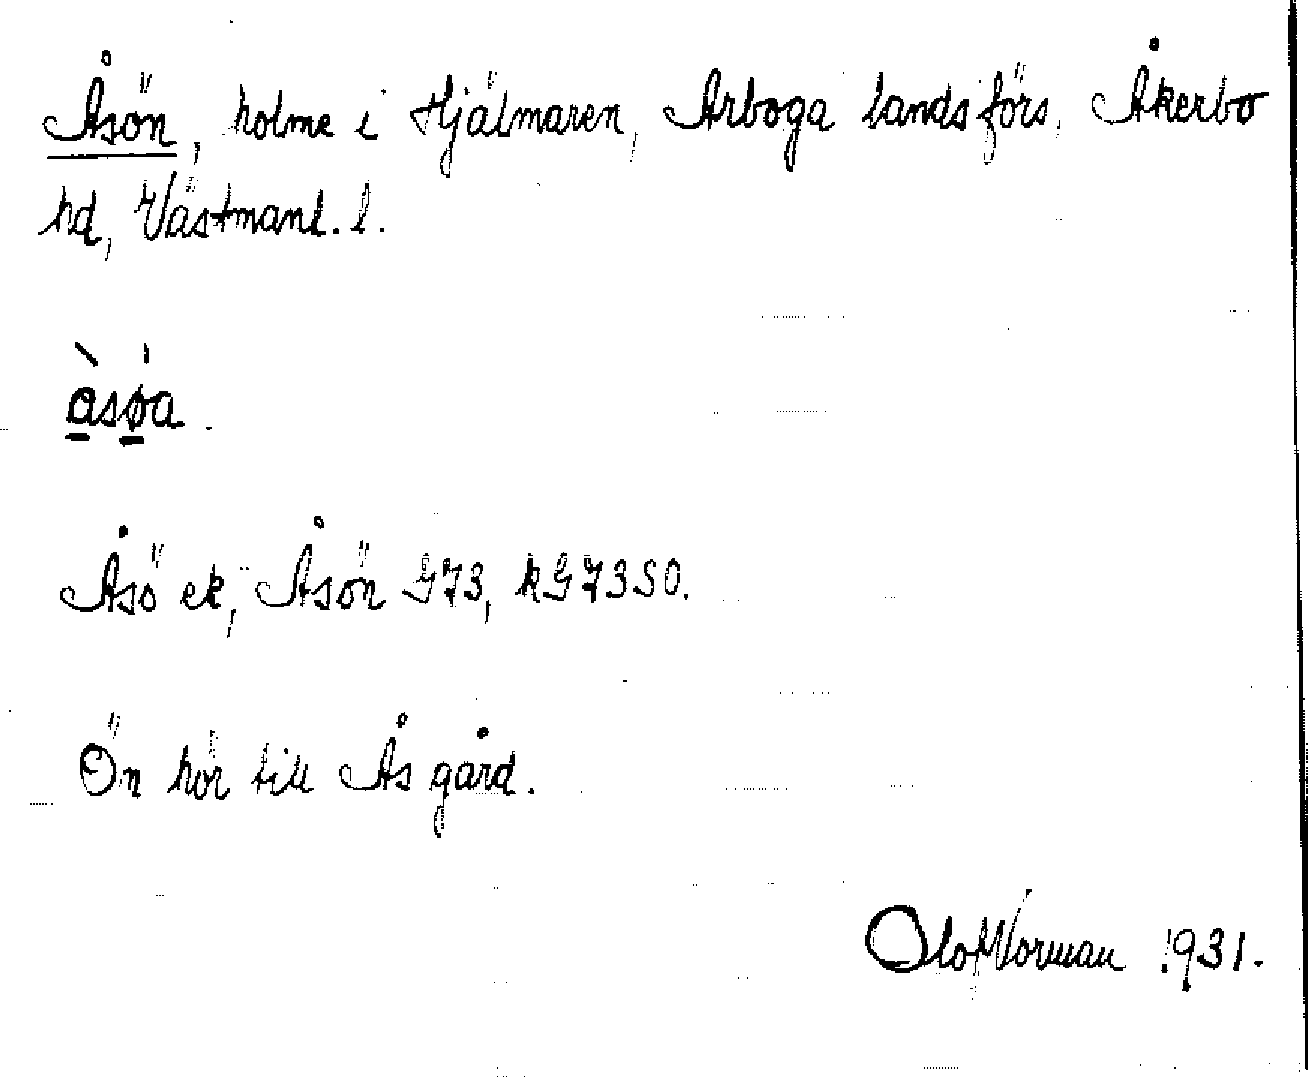 Åsön, holme i Hjälmaren, Arboga landsförs. Åkerbo
hd, Västmanl. l.
àsø̀a.
Åsö ek, Åsön G73, kG73SO.
Ön hör till Ås gård.
Olof Norman 1931.